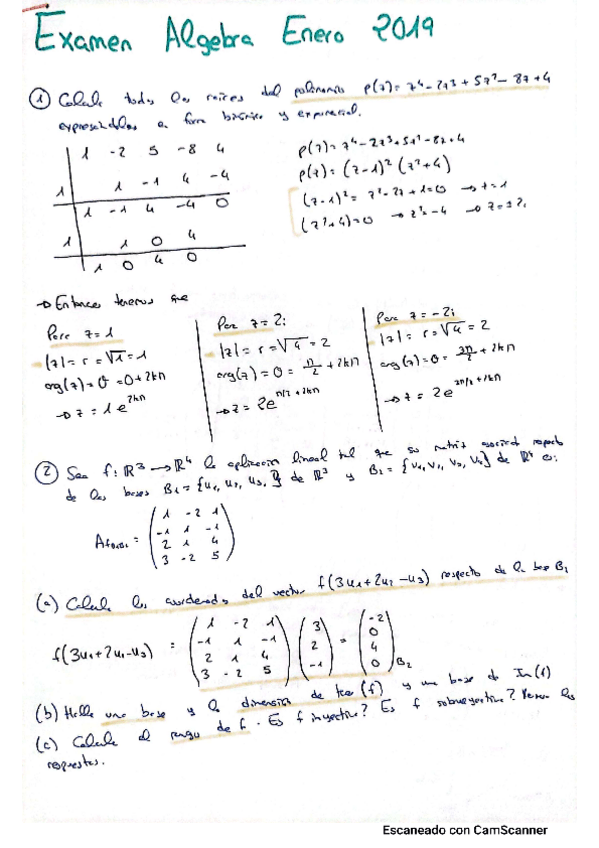 Examen Algebra Enero 2019
① Calcule todas las raíces del polinomio p(z) = z⁴ - 2z³ + 5z² - 8z + 4
expresándolas en forma binómica y exponencial.
1 -2 5 -8 4
1 1 -1 4 -4
1 -1 4 -4 0
1 1 0 4
1 0 4 0
p(z) = z⁴ - 2z³ + 5z² - 8z + 4
p(z) = (z-1)² (z²+4)
(z-1)² = z² - 2z + 1 = 0 → z = 1
(z²+4) = 0 → z² = -4 → z = ±2i
→ Entonces tenemos que
Para z = 1
|z| = r = √1 = 1
arg(z) = θ = 0 + 2kπ
→ z = 1e^{2kπ}
Para z = 2i
|z| = r = √4 = 2
arg(z) = θ = π/2 + 2kπ
→ z = 2e^{π/2 + 2kπ}
Para z = -2i
|z| = r = √4 = 2
arg(z) = θ = 3π/2 + 2kπ
→ z = 2e^{3π/2 + 2kπ}
② Sea f: ℝ³ → ℝ⁴ la aplicación lineal tal que su matriz asociada respecto
de las bases B₁ = {u₁, u₂, u₃} de ℝ³ y B₂ = {v₁, v₂, v₃, v₄} de ℝ⁴ es:
1 -2 1
-1 1 -1
2 1 4
3 -2 5
(a) Calcule las coordenadas del vector f(3u₁+2u₂-u₃) respecto de la base B₂
f(3u₁+2u₂-u₃) = ( 1 -2 1 ) ( 3 ) = ( -2 )
( -1 1 -1 ) ( 2 ) ( 0 )
( 2 1 4 ) ( -1 ) ( 4 )
( 3 -2 5 ) ( 0 ) B₂
(b) Halle una base y la dimensión de ker(f) y una base de Im(f)
(c) Calcule el rango de f. Es f inyectiva? Es f sobreyectiva? las
respuestas.
Escaneado con CamScanner